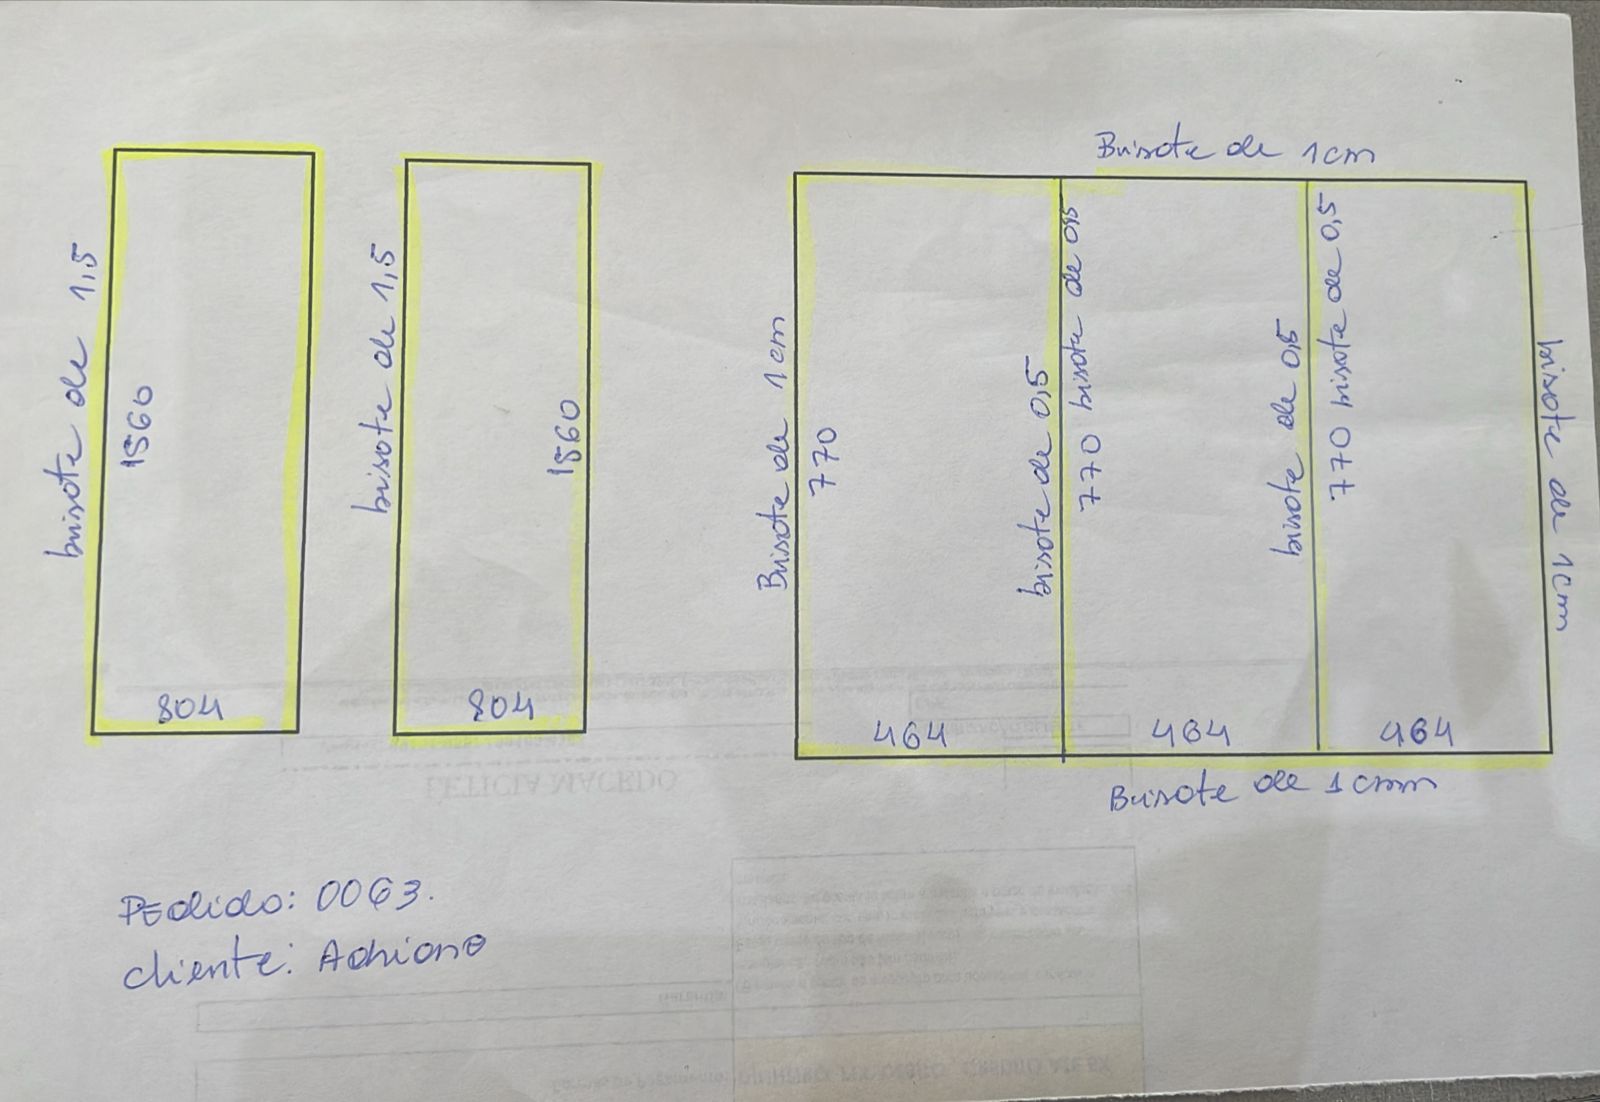 Bisote de 1cm
bisote de 1,5
1860
804
bisote de 1,5
1860
804
Bisote de 1cm
770
464
bisote de 0,5
770 bisote de 0,5
464
bisote de 0,5
770 bisote de 0,5
464
bisote de 1cm
Bisote de 1cm
LETICIA MACEDO
Pedido: 0063.
cliente: Adriano